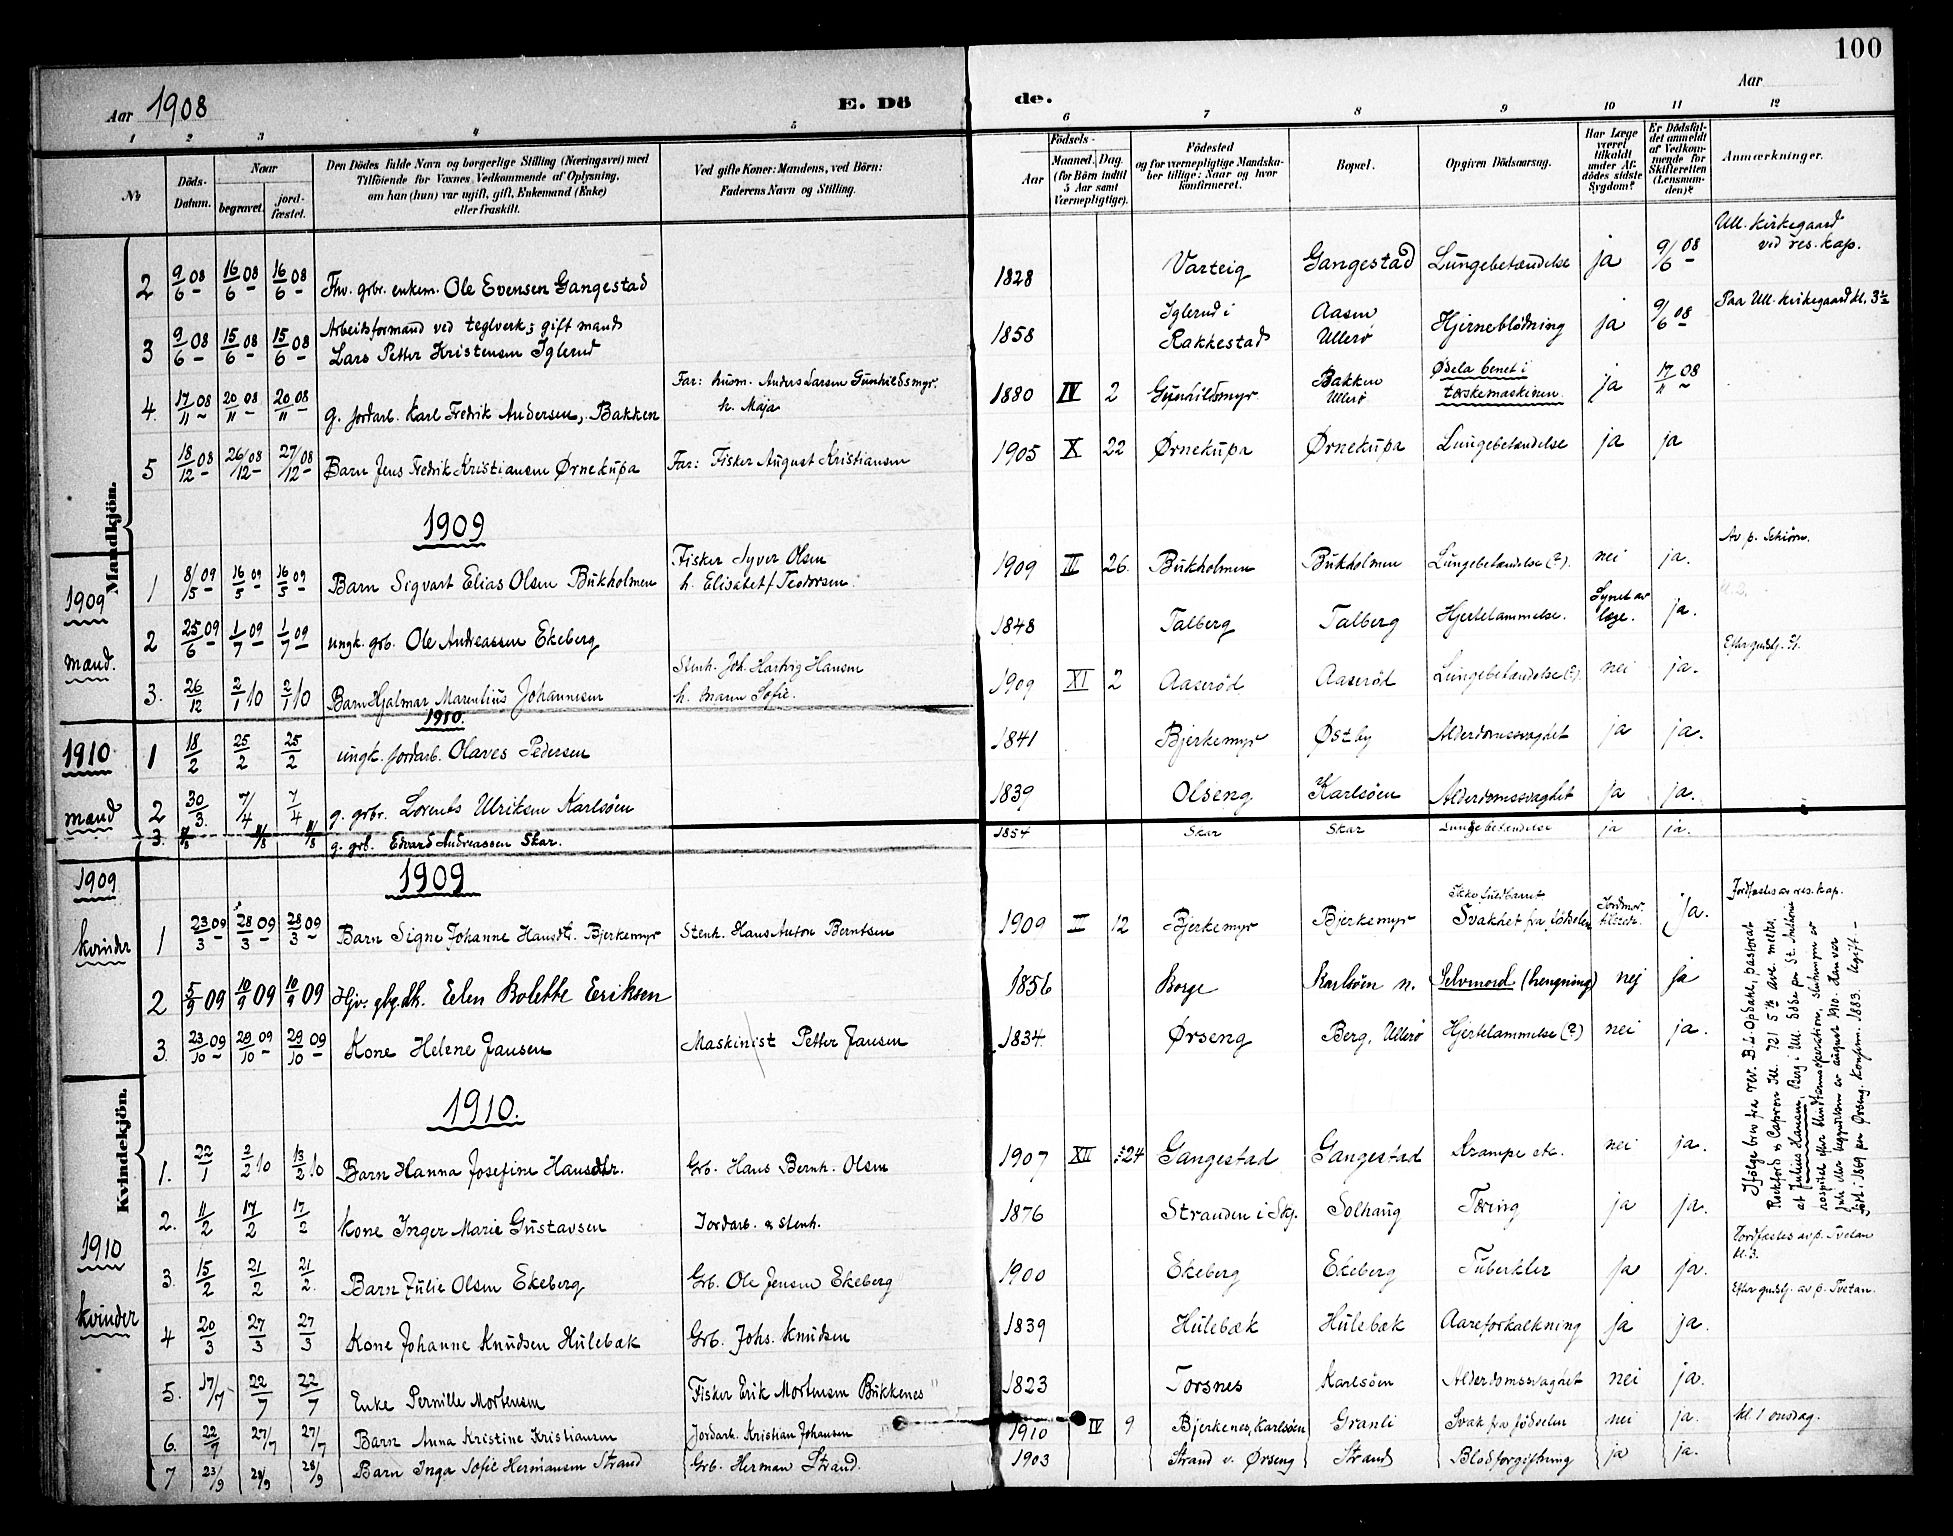 100
Aar 1908 E. Dö de. Aar
1 2 3 4 5 6 7 8 9 10 11 12
№ Döds-Datum. Naar begravet. jord-fæstet. Den Dödes fulde Navn og borgerlige Stilling (Næringsvei) med Tilföiende for Voxnes Vedkommende af Oplysning, om han (hun) var ugift, gift, Enkemand (Enke) eller fraskilt. Ved gifte Koner: Mandens, ved Börn: Faderens Navn og Stilling. Aar Födsels- Maaned. Dag. (for Börn indtil 5 Aar samt Værnepligtige). Födested og for værnepligtige Mandska-ber tillige: Naar og hvor konfirmeret. Bopæl. Opgiven Dödsaarsag. Har Læge været tilkaldt under Af-dödes sidste Sygdom? Er Dödsfal-det anmeldt af Vedkom-mende for Skifteretten (Lensman-den)? Anmærkninger.
Mandkjön.
2 9/6 08 16/6 08 16/6 08 Fhv. grbr. enkem. Ole Evensen Gangestad 1828 Varteig Gangestad Lungebetændelse ja 9/6 08 Ull. kirkegaard ved res. kap.
3 9/6 08 15/6 08 15/6 08 Arbeidsformand ved teglverk; gift mand Lars Petter Kristensen Iglerud 1858 Iglerud i Rakkestad Aasen Ullerö Hjerneblödning ja 9/6 08 Paa Ull. kirkegaard kl. 3½
4. 17/11 08 20/11 08 20/11 08 g. jordarb. Karl Fredrik Andersen, Bakken Far: husm. Anders Larsen Gunhildsmyr. h. Maja 1880 IV 2 Gunhildsmyr Bakken Ullerö Ødela benet i tærskemaskinen. ja 17/11 08
5 18/12 08 26/12 08 27/12 08 Barn Jens Fredrik Kristiansen Ørnekupa Far: Fisker August Kristiansen 1905 X 22 Ørnekupa Ørnekupa Lungebetændelse ja ja
1909
1909 mænd.
1 8/5 09 16/5 09 16/5 09 Barn Sigvart Elias Olsen Bukholmen Fisker Syver Olsen h. Elisabet f. Teodorsen 1909 26 Bukholmen Bukholmen Lungebetændelse (?). nei ja. Av p. Schiörn.
2 25/6 09 1/7 09 1/7 09 ungk. grb. Ole Andreassen Ekeberg 1848 Talberg Talberg Hjertelammelse. Synet av læge. ja.
3. 26/12 2/1 10 2/1 10 Barn Hjalmar Marentius Johannesen Stenh. Joh. Hartvig Hansen h. Maren Sofie. 1909 XI 2 Aaseröd Aaseröd Lungebetændelse (?). nei ja.
1910.
1910 mænd
1 18/2 25/2 25/2 ungk. jordarb. Olaves Pedersen 1841 Bjerkemyr Østby Alderdomssvaghet ja ja.
2 30/3. 7/4 7/4 g. grbr. Lorents Ulriksen Karlsöen 1839 Olseng Karlsöen Alderdomssvaghet ja ja.
3. g. grb. Edvard Andreassen Skar. 1854 Skar Skar Lungebetændelse ja ja.
1909
1909 kvinder
1 23/3 09 28/3 09 28/3 09 Barn Signe Johanne Hansdtr. Bjerkemyr Stenh. Hans Anton Berntsen 1909 II 12 Bjerkemyr Bjerkemyr Ikke fuldbaaret Svakhet fra födselen Jordmor tilstede. Ja. Jordfæstes av res. kap.
2 5/9 09 10/9 09 10/9 09 Hjv. Eelen Bolette Eriksen 1856 Borge Karlsöen n. Selvmord (hengning) nej Ja
3. 23/10 09 29/10 09 29/10 09 Kone Helene Jansen Maskinist Petter Jansen 1834. Ørseng Berg, Ullerö Hjertelammelse (?) nei ja.
Ifölge brev fra rev. B. L. Opdahl, pastorat Rockford & Capron Ill. 721 5th ave. meldes at Julius Hansen, Berg i Ull. döde paa St. Anthonis hospital efter blindtarmsoperation, slutningen av juli eller begyndelsen av august 1910. Han var född i 1869 paa Ørseng. Konfirm. 1883. Ugift.
1910.
Kvindekjön.
1910 kvinder
1. 22/1 2/2 10 13/2 10 Barn Hanna Josefine Hansdtr. Grb. Hans Bernh. Olsen 1907 XII 24 Gangestad Gangestad Krampe etc. nei ja.
2. 11/2 17/2 17/2 Kone Inger Marie Gustavsen Jordarb. & stenh. 1876 Stranden i Skj. Solhaug Tæring ja ja.
3. 15/2 21/2 21/2. Barn Julie Olsen Ekeberg Grb. Ole Jensen Ekeberg 1900 Ekeberg Ekeberg Tuberkler ja ja. Jordfæstes av p. Tvetan kl. 3.
4 20/3 27/3 27/3 Kone Johanne Knudsen Hulebæk Grb. Johs. Knudsen 1839 Hulebæk Hulebæk Aareforkalkning ja ja. Efter gudstj. av p. Tvetan.
5. 17/7 22/7 22/7 Enke Pernille Mortensen Fisker Erik Mortensen Bukkenes 1823 Torsnes Karlsöen Alderdomssvaghet nei ja.
6. 22/7 27/7 27/7 Barn Anna Kristine Kristiansen Jordarb. Kristian Johansen 1910 IV 9 Bjerkenes, Karlsöen Granli Svak fra födselen nei ja. kl. 1 onsdag.
7 23/9 28/9 28/9 Barn Inga Sofie Hermansen Strand Grb. Herman Strand. 1903 Strand v. Ørseng Strand Blodforgiftning ja ja.